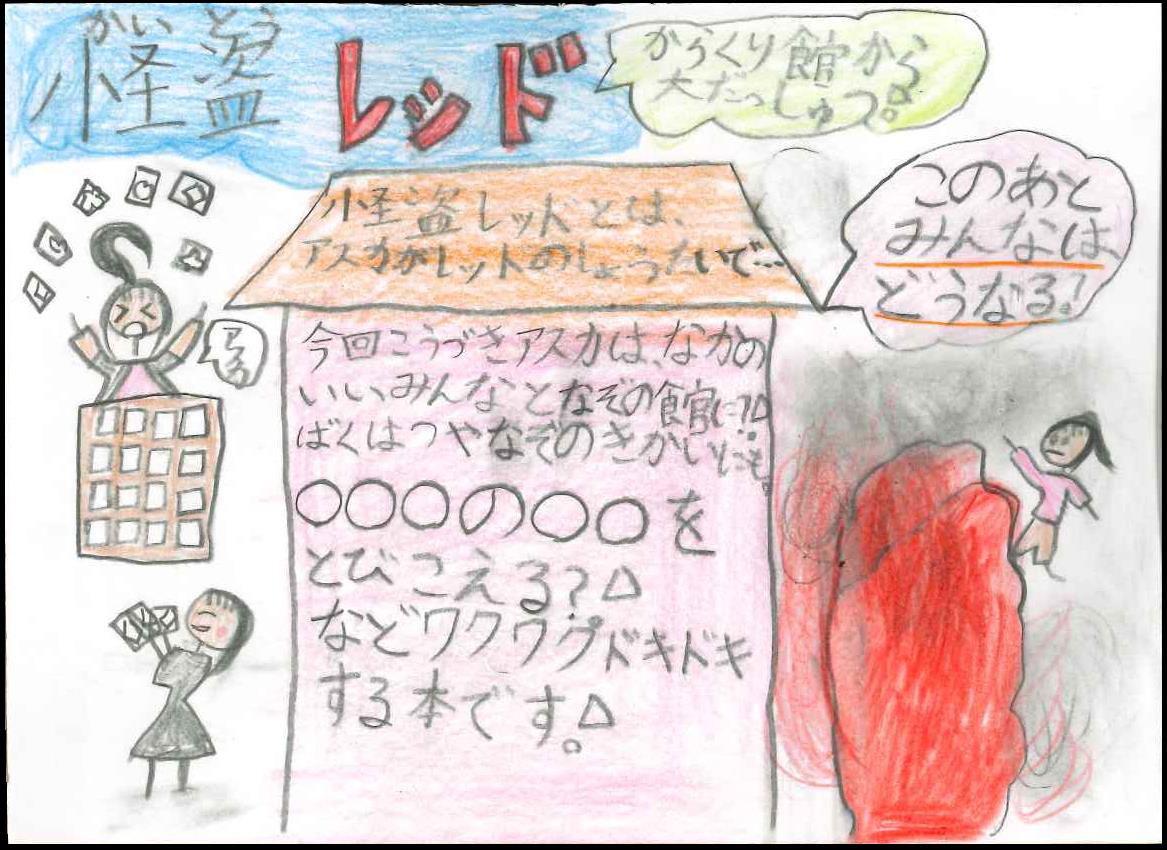 かいとう
怪盗
レッド
からくり館から
大だっしゅつ!
このあと
みんなは、
どうなる!
怪盗レッドとは、
アスカがレットのしょうたいで…
今回こうづきアスカは、なかの
いいみんなとなぞの館に?!
ばくはつやなぞのきかいにも
○○○の○○を
とびこえる?!
などワクワクドキドキ
する本です。!